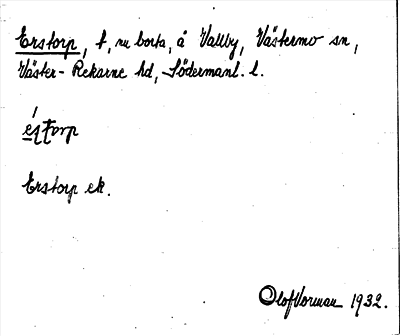 Erstorp, t, nu borta, å Vallby, Västermo sn,
Väster-Rekarne hd, Södermanl. l.
Erstorp ek.
Olof Vorman 1932.